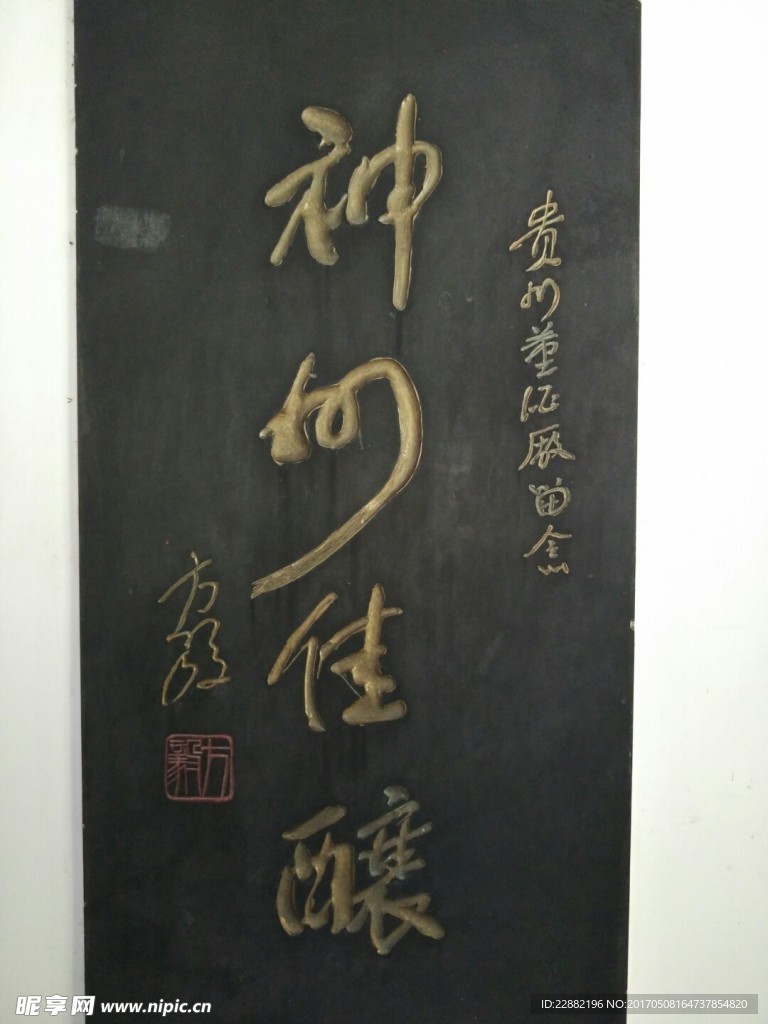 贵州董酒厰留念
神州佳釀
方毅
方毅
昵享网 www.nipic.cn
ID:22882196 NO:20170508164737854820